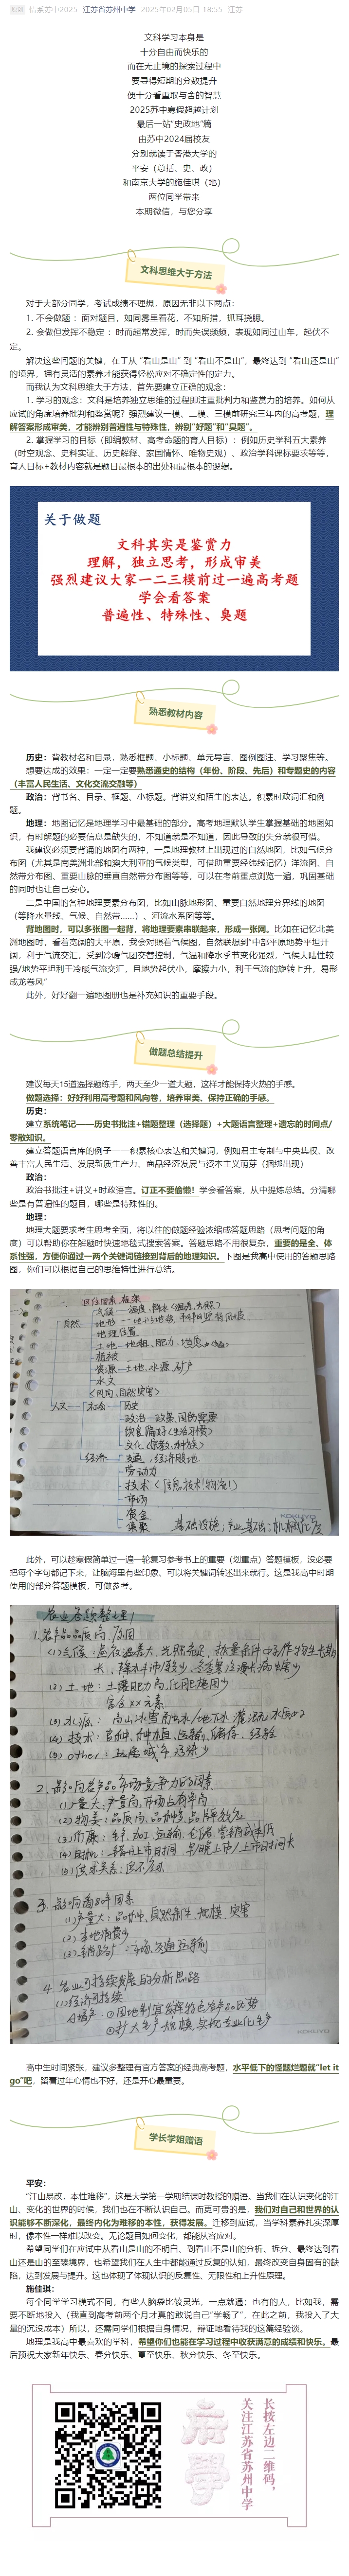 原创 情系苏中2025 江苏省苏州中学 2025年02月05日 18:55 江苏
文科学习本身是
十分自由而快乐的
而在无止境的探索过程中
要寻得短期的分数提升
便十分看重取与舍的智慧
2025苏中寒假超越计划
最后一站“史政地”篇
由苏中2024届校友
分别就读于香港大学的
平安（总括、史、政）
和南京大学的施佳琪（地）
两位同学带来
本期微信，与您分享
文科思维大于方法
对于大部分同学，考试成绩不理想，原因无非以下两点：
1. 不会做题：面对题目，如同雾里看花，不知所措，抓耳挠腮。
2. 会做但发挥不稳定：时而超常发挥，时而失误频频，表现如同过山车，起伏不
定。
解决这些问题的关键，在于从 “看山是山” 到 “看山不是山”，最终达到 “看山还是山”
的境界，拥有灵活的素养才能获得轻松应对不确定性的定力。
而我认为文科思维大于方法，首先要建立正确的观念：
1. 学习的观念：文科是培养独立思维的过程即注重批判力和鉴赏力的培养。如何从
应试的角度培养批判和鉴赏呢？强烈建议一模、二模、三模前研究三年内的高考题，理
解答案形成审美，才能辨别普遍性与特殊性，辨别“好题”和“臭题”。
2. 掌握学习的目标（即编教材、高考命题的育人目标）：例如历史学科五大素养
（时空观念、史料实证、历史解释、家国情怀、唯物史观）、政治学科课标要求等等，
育人目标+教材内容就是题目最根本的出处和最根本的逻辑。
关于做题
文科其实是鉴赏力
理解，独立思考，形成审美
强烈建议大家一二三模前过一遍高考题
学会看答案
普遍性、特殊性、臭题
熟悉教材内容
历史：背教材名和目录，熟悉框题、小标题、单元导言、图例图注、学习聚焦等。
想要达成的效果：一定一定要熟悉通史的结构（年份、阶段、先后）和专题史的内容
（丰富人民生活、文化交流交融等）
政治：背书名、目录、框题、小标题。背讲义和陌生的表达。积累时政词汇和例
题。
地理：地图记忆是地理学习中最基础的部分。高考地理默认学生掌握基础的地图知
识，有时解题的必要信息是缺失的，不知道就是不知道，因此导致的失分就很可惜。
我建议必须要背诵的地图有两种，一是地理教材上出现过的自然地图，比如气候分
布图（尤其是南美洲北部和澳大利亚的气候类型，可借助重要经纬线记忆）洋流图、自
然带分布图、重要山脉的垂直自然带分布图等等，可以在考前重点浏览一遍，巩固基础
的同时也让自己安心。
二是中国的各种地理要素分布图，比如山脉地形图、重要自然地理分界线的地图
（等降水量线、气候、自然带……）、河流水系图等等。
背地图时，可以多张图一起背，将地理要素串联起来，形成一张网。比如在记忆北美
洲地图时，看着宽阔的大平原，我会对照着气候图，自然联想到“中部平原地势平坦开
阔，利于气流交汇，受到冷暖气团交替控制，气温和降水季节变化强烈，气候大陆性较
强/地势平坦利于冷暖气流交汇，且地势起伏小，摩擦力小，利于气流的旋转上升，易形
成龙卷风”
此外，好好翻一遍地图册也是补充知识的重要手段。
做题总结提升
建议每天15道选择题练手，两天至少一道大题，这样才能保持火热的手感。
做题选择：好好利用高考题和风向卷，培养审美、保持正确的手感。
历史：
建立系统笔记——历史书批注+错题整理（选择题）+大题语言整理+遗忘的时间点/
零散知识。
建立答题语言库的例子——积累核心表达和关键词，例如君主专制与中央集权、改
善丰富人民生活、发展新质生产力、商品经济发展与资本主义萌芽（捆绑出现）
政治：
政治书批注+讲义+时政语言。订正不要偷懒！学会看答案，从中提炼总结。分清哪
些是有普遍性的题目，哪些是特殊性的。
地理：
地理大题要求考生思考全面，将以往的做题经验浓缩成答题思路（思考问题的角
度）可以帮助你在解题时快速地毯式搜索答案。答题思路不用很复杂，重要的是全、体
系性强，方便你通过一两个关键词链接到背后的地理知识。下图是我高中使用的答题思路
图，你们可以根据自己的思维特性进行总结。
自然
地形
地理位置
植被
水文
人文
社会
历史
经济
劳动力
市场
资金
此外，可以趁寒假简单过一遍一轮复习参考书上的重要（划重点）答题模板，没必要
把每个字句都记下来，让脑海里有些印象、可以将关键词转述出来就行。这是我高中时期
使用的部分答题模板，可做参考。
农业答题整理1
1. 农产品品质高原因
(2) 土地：土壤肥力高，化肥施用少
富含xx元素
2. 影响农产品市场竞争力的因素
3. 影响商品率因素
4. 农业可持续发展的分析思路
(1) 经济可持续
高中生时间紧张，建议多整理有官方答案的经典高考题，水平低下的怪题烂题就“let it
go”吧，留着过年心情也不好，还是开心最重要。
学长学姐赠语
平安：
“江山易改，本性难移”，这是大学第一学期结课时教授的赠语。当我们在认识变化的江
山、变化的世界的时候，我们也在不断认识自己。而更可贵的是，我们对自己和世界的认
识能够不断深化，最终内化为难移的本性，获得发展。迁移到应试，当学科素养扎实深厚
时，像本性一样难以改变。无论题目如何变化，都能从容应对。
希望同学们在应试中从看山是山的不明白、到看山不是山的分析、拆分、最终达到看
山还是山的至臻境界，也希望我们在人生中都能通过反复的认知，最终改变自身固有的缺
陷，达到发展与提升。这也体现了体现认识的反复性、无限性和上升性原理。
施佳琪：
每个同学学习模式不同，有些人脑袋比较灵光，一点就通；也有的人，比如我，需
要不断地投入（我直到高考前两个月才真的敢说自己“学畅了”，在此之前，我投入了大
量的沉没成本）所以，还需同学们根据自身情况，辩证地看待我的这篇经验谈。
地理是我高中最喜欢的学科，希望你们也能在学习过程中收获满意的成绩和快乐。最
后预祝大家新年快乐、春分快乐、夏至快乐、秋分快乐、冬至快乐。
长按左边二维码，
关注江苏省苏州中学